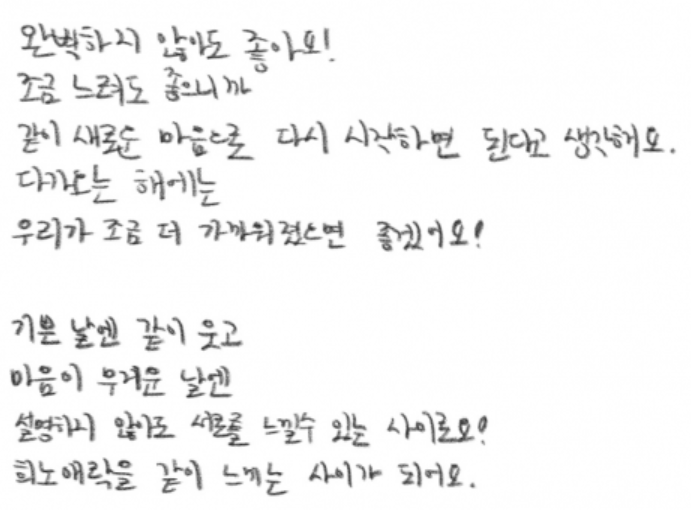 완벽하지 않아도 좋아요!
조금 느려도 좋으니까
같이 새로운 마음으로 다시 시작하면 된다고 생각해요.
다가오는 해에는
우리가 조금 더 가까워졌으면 좋겠어요!
기쁜 날엔 같이 웃고
마음이 무거운 날엔
설명하지 않아도 서로를 느낄수 있는 사이로요!
희노애락을 같이 느끼는 사이가 되어요.